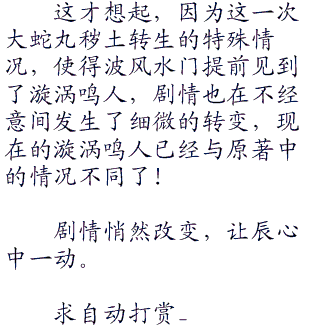 这才想起，因为这一次
大蛇丸秽土转生的特殊情
况，使得波风水门提前见到
了漩涡鸣人，剧情也在不经
意间发生了细微的转变，现
在的漩涡鸣人已经与原著中
的情况不同了！
剧情悄然改变，让辰心
中一动。
求自动打赏_